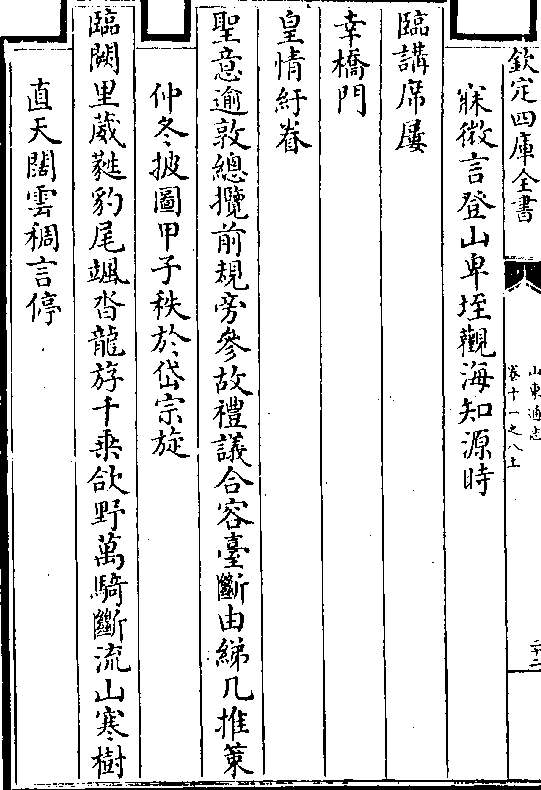 欽定四庫全書
山東通志
卷十一之八上
寐微言登山卑垤觀海知源時
臨講席屢
幸橋門
皇情紆眷
聖意逾敦總攬前規旁參故禮議合容臺斷由綈几推䇿
仲冬披圖甲子秩於岱宗旋
臨闕里葳蕤豹尾颯沓龍斿千乗欱野萬騎斷流山寒樹
直天闊雲稠言停